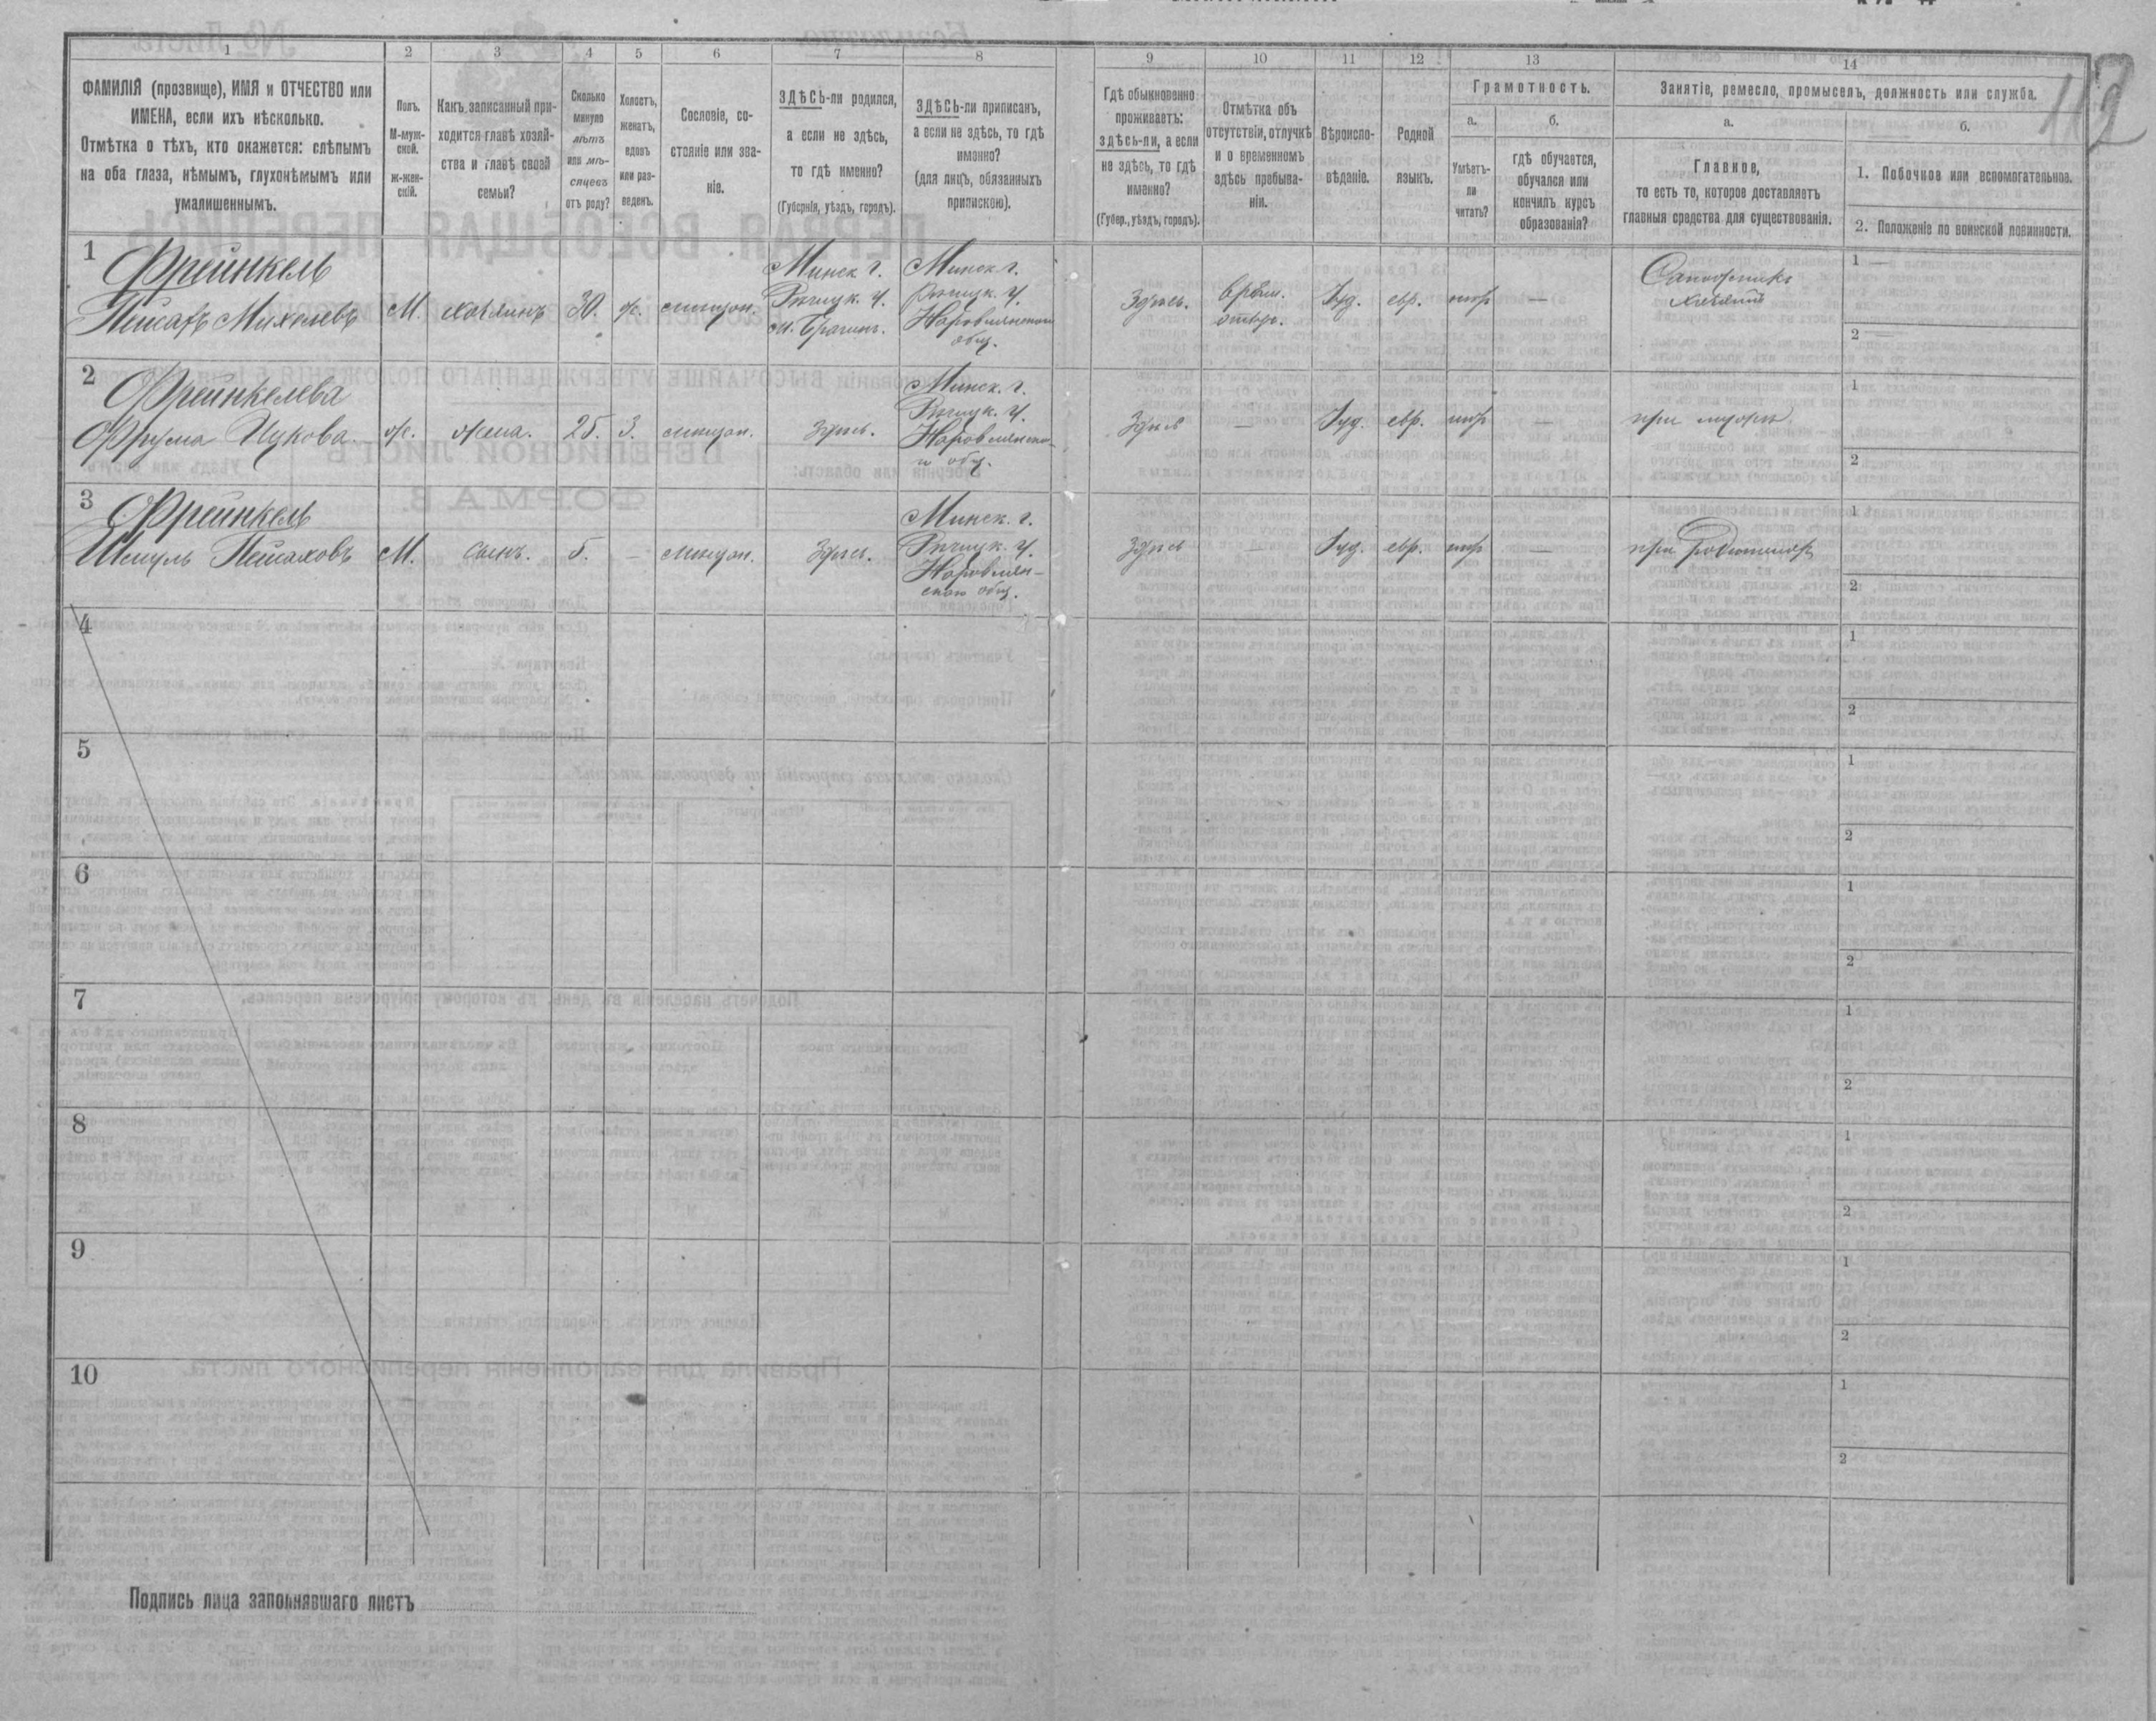 1
2
3
4
5
6
7
8
9
10
11
12
13
14
ФАМИЛІЯ (прозвище), ИМЯ и ОТЧЕСТВО или
ИМЕНА, если ихъ нѣсколько.
Отмѣтка о тѣхъ, кто окажется: слѣпымъ
на оба глаза, нѣмымъ, глухонѣмымъ или
умалишеннымъ.
Полъ.
М-муж-
ской.
ж-жен-
скій.
Какъ записанный при-
ходится главѣ хозяй-
ства и главѣ своей
семьи?
Сколько
минуло
лѣтъ
или мѣ-
сяцевъ
отъ роду?
Холостъ,
женатъ,
вдовъ
или раз-
веденъ.
Сословіе, со-
стояніе или зва-
ніе.
ЗДѢСЬ-ли родился,
а если не здѣсь,
то гдѣ именно?
(Губернія, уѣздъ, городъ).
ЗДѢСЬ-ли приписанъ,
а если не здѣсь, то гдѣ
именно?
(для лицъ, обязанныхъ
припискою).
Гдѣ обыкновенно
проживаетъ:
здѣсь-ли, а если
не здѣсь, то гдѣ
именно?
(Губер., уѣздъ, городъ).
Отмѣтка объ
отсутствіи, отлучкѣ
и о временномъ
здѣсь пребыва-
ніи.
Вѣроиспо-
вѣданіе.
Родной
языкъ.
Грамотность.
а.
Умѣетъ-
ли
читать?
б.
гдѣ обучается,
обучался или
кончилъ курсъ
образованія?
Занятіе, ремесло, промыселъ, должность или служба.
а.
Главное,
то есть то, которое доставляетъ
главныя средства для существованія.
б.
1. Побочное или вспомогательное.
2. Положеніе по воинской повинности.
112
1
Фрейнкель
Пейсахъ Михелевъ
М.
хозяинъ
30.
ж.
мѣщан.
Минск г.
Рѣчицк. у.
м. Брагинъ.
Минск г.
Рѣчицк. у.
Наровлянском
общ.
Здѣсь.
врем.
отсут.
Іуд.
евр.
нѣтъ
—
Сапожникъ
хозяинъ
1 —
2 —
2
Фрейнкелева
Фрума Ицкова.
ж.
жена.
25.
З.
мѣщан.
Здѣсь.
Минск. г.
Рѣчицк. у.
Наровлянско-
м общ.
Здѣсь
—
Іуд.
евр.
нѣтъ
—
при мужѣ
1
2
3
Фрейнкель
Шмуль Пейсаховъ
М.
сынъ.
5.
—
мѣщан.
Здѣсь.
Минск. г.
Рѣчицк. у.
Наровлян-
ском общ.
Здѣсь
—
Іуд.
евр.
нѣтъ
—
при родителяхъ
1
2
4
1
2
5
1
2
6
1
2
7
1
2
8
1
2
9
1
2
10
1
2
Подпись лица заполнявшаго листъ